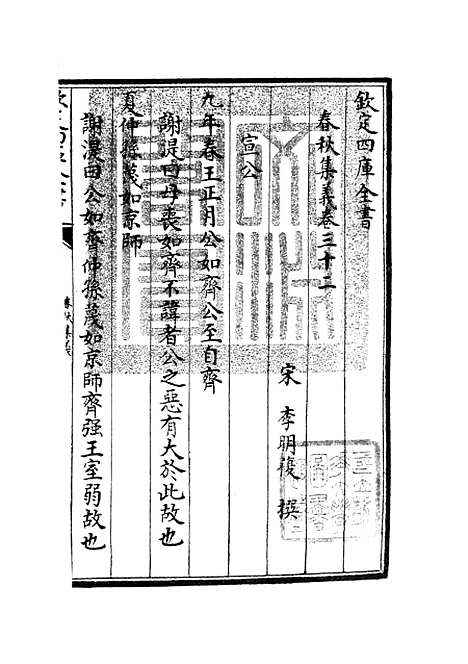 欽定四庫全書
春秋集義卷三十二
宋 李明復 撰
宣公
九年春王正月公如齊公至自齊
謝湜曰母喪如齊不諱者公之惡有大於此故也
夏仲孫蔑如京師
謝湜曰公如齊仲孫蔑如京師齊强王室弱故也
春秋集義